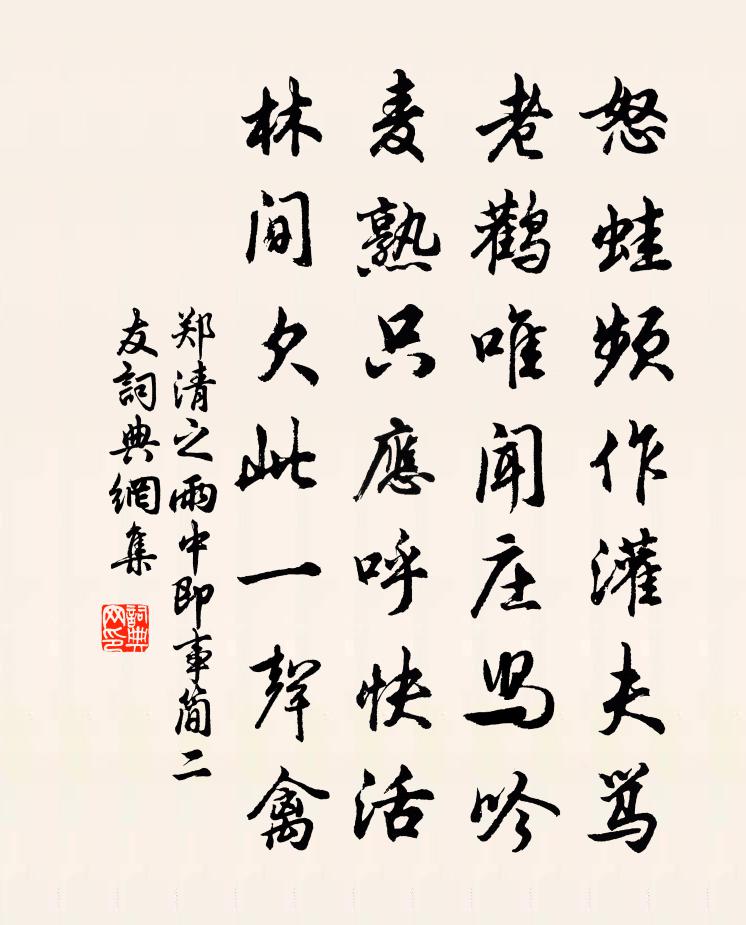 怒蛙频作灌夫骂
老鹳唯闻庄舄吟
麦熟只應呼快活
林间欠此一聲禽
郑清之雨中即事简二
友詞典網集
詞典网印